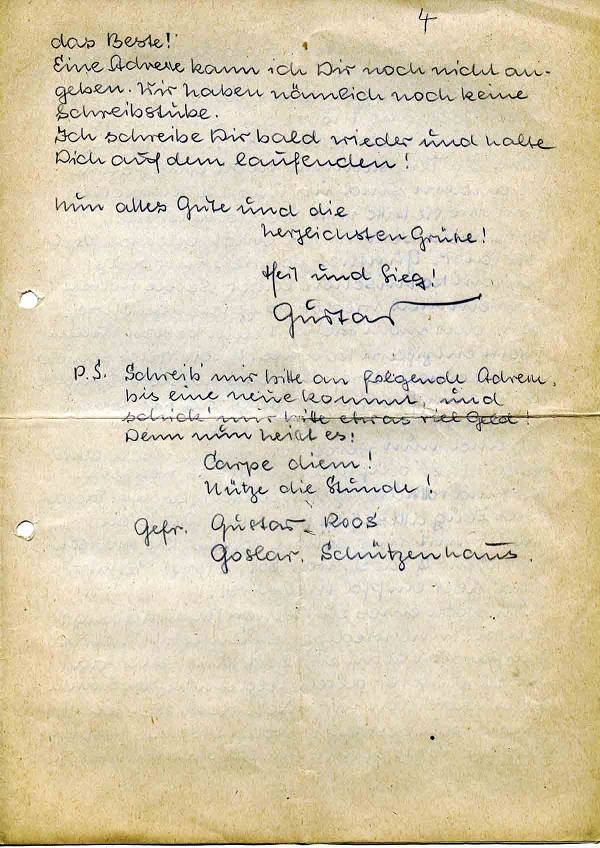 4
das Beste!
Eine Adresse kann ich Dir noch nicht an-
geben. Wir haben nämlich noch keine
Schreibstube.
Ich schreibe Dir bald wieder und halte
Dich auf dem laufenden!
Nun alles Gute und die
herzlichsten Grüße!
Heil und Sieg!
Gustav
P.S. Schreib' mir bitte an folgende Adresse,
bis eine neue kommt, und
schick' mir bitte etwas viel Geld!
Denn nun heißt es!
Carpe diem!
Nütze die Stunde!
Gefr. Gustav Roos
Goslar. Schützenhaus.